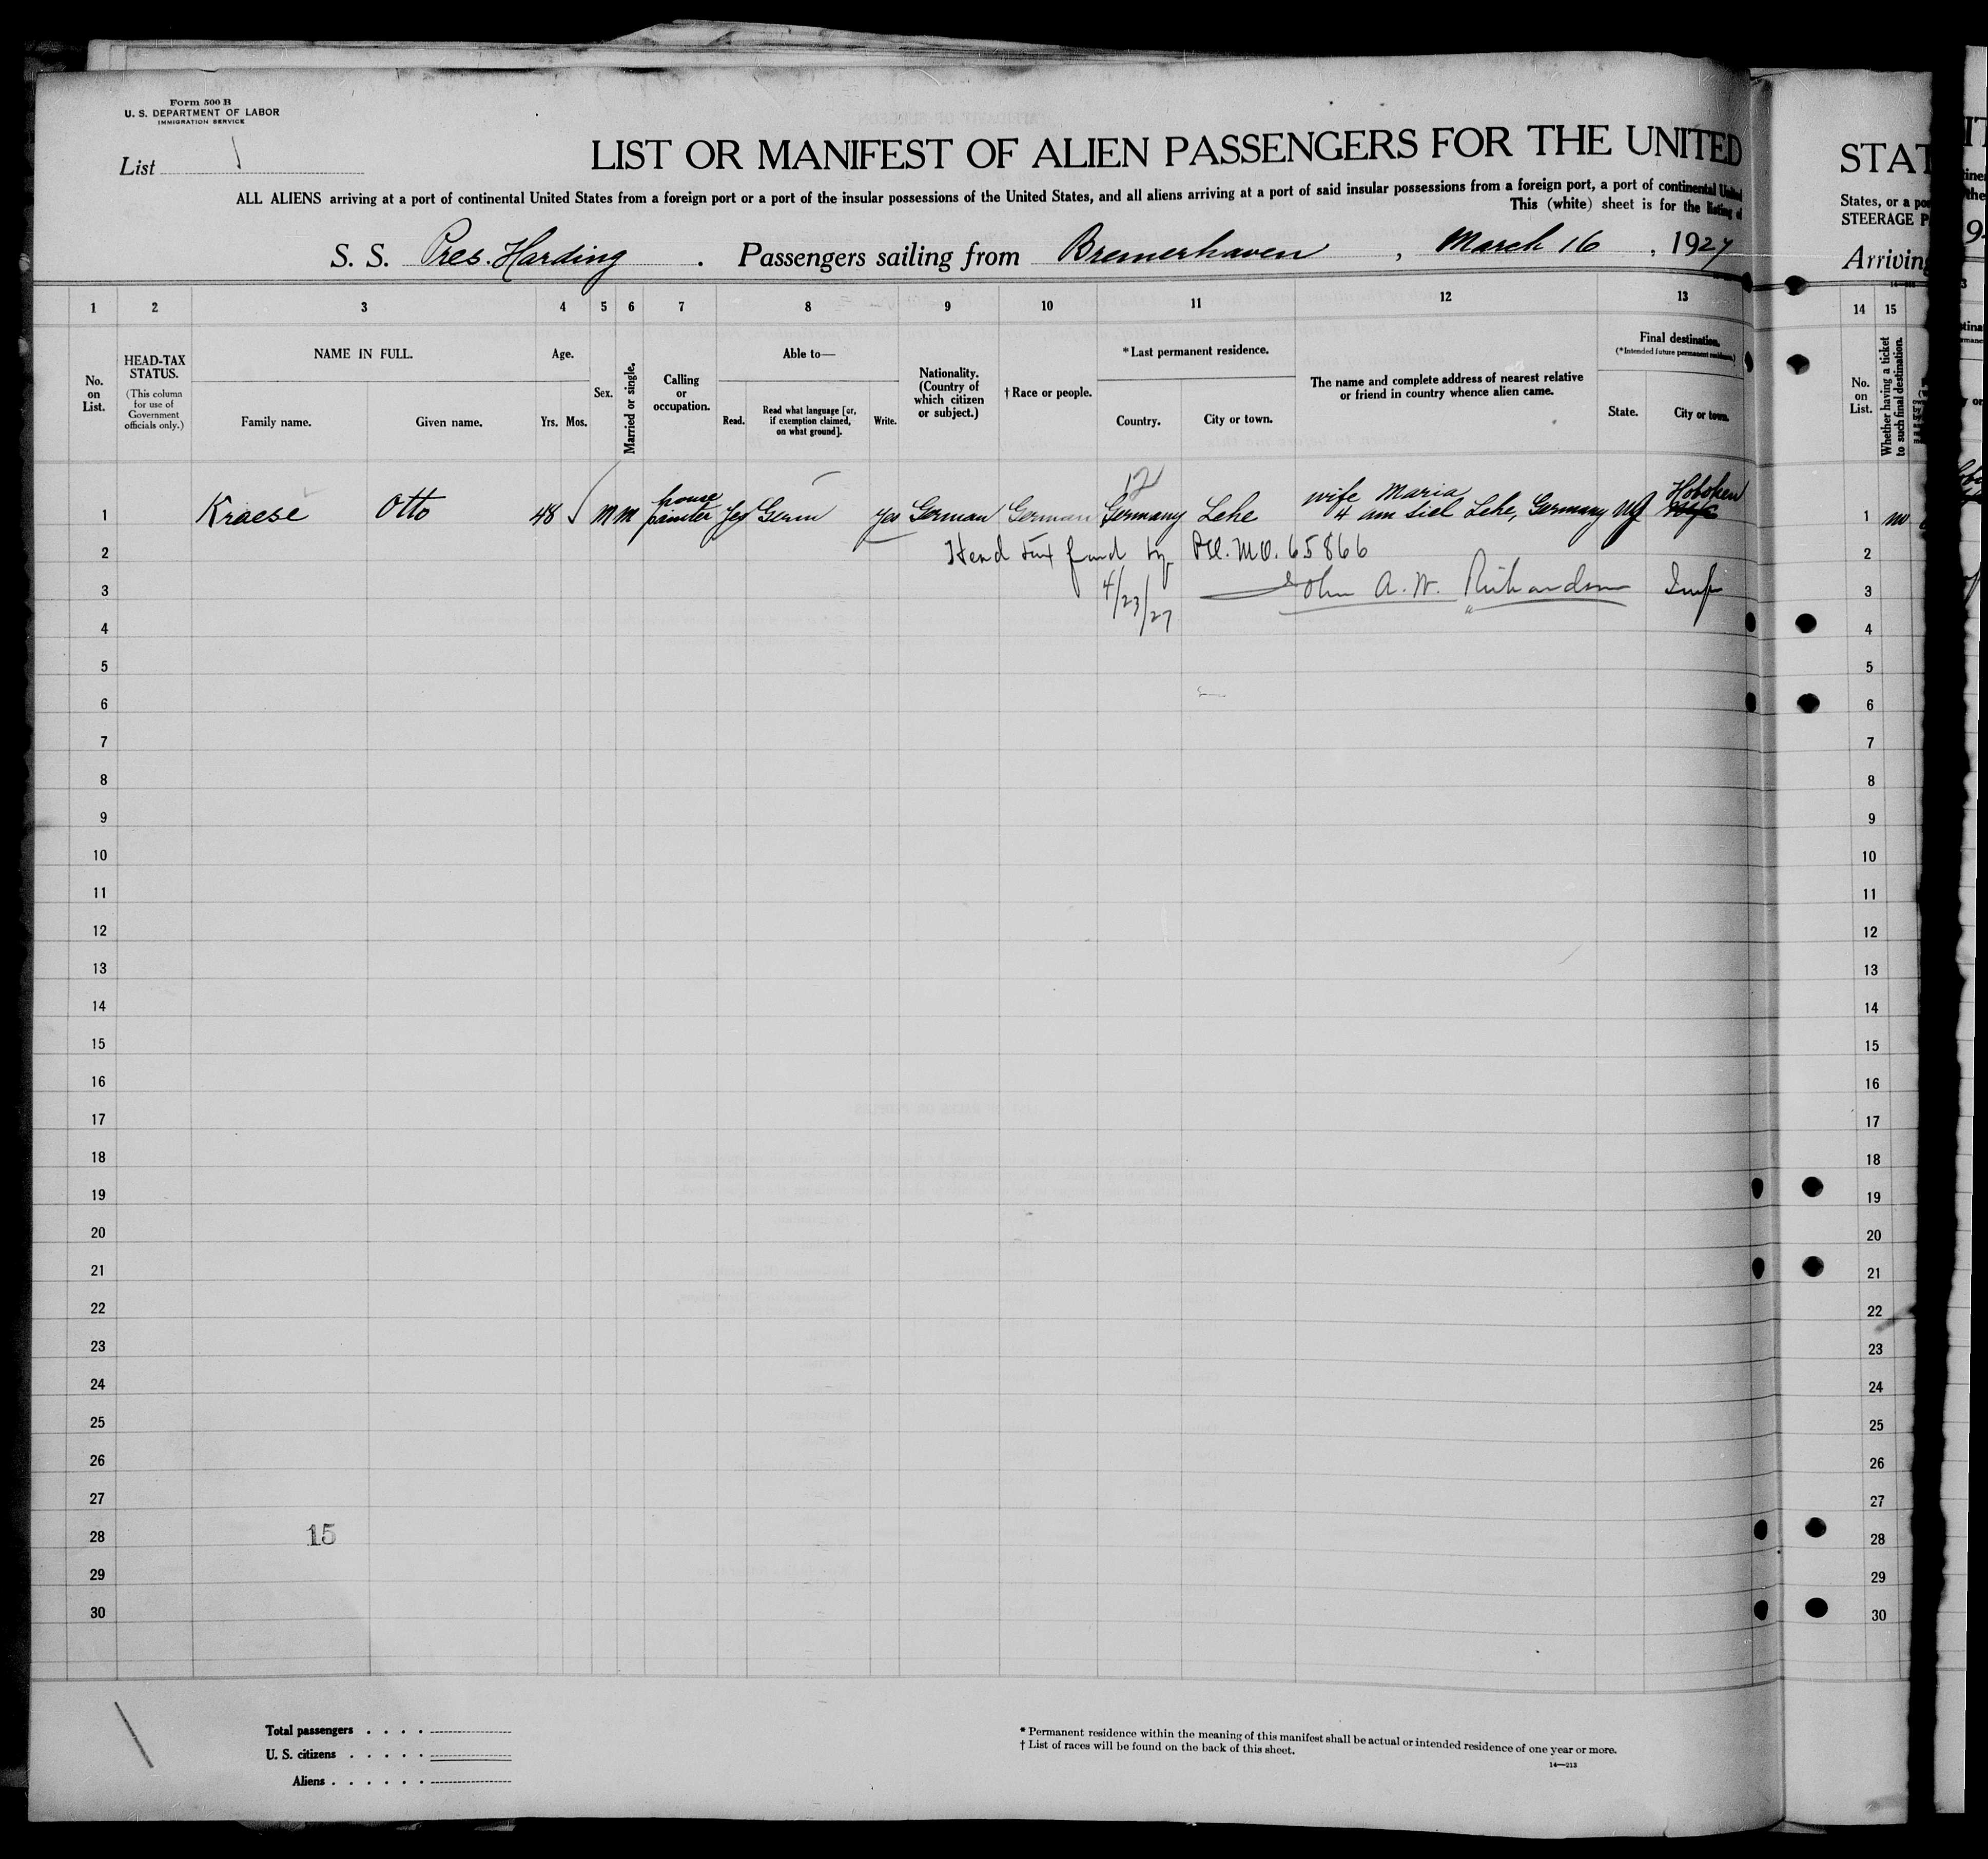 Form 500 B
U. S. DEPARTMENT OF LABOR
IMMIGRATION SERVICE
List
LIST OR MANIFEST OF ALIEN PASSENGERS FOR THE UNITED
ALL ALIENS arriving at a port of continental United States from a foreign port or a port of the insular possessions of the United States, and all aliens arriving at a port of said insular possessions from a foreign port, a port of continental United
This (white) sheet is for the listing of
S. S. Pres. Harding . Passengers sailing from Bremerhaven , March 16 , 1927
1 2 3 4 5 6 7 8 9 10 11 12 13
No. on List.
HEAD-TAX STATUS.
(This column for use of Government officials only.)
NAME IN FULL.
Family name. Given name.
Age.
Yrs. Mos.
Sex.
Married or single.
Calling or occupation.
Able to—
Read. Read what language [or, if exemption claimed, on what ground]. Write.
Nationality. (Country of which citizen or subject.)
† Race or people.
* Last permanent residence.
Country. City or town.
The name and complete address of nearest relative or friend in country whence alien came.
Final destination.
(*Intended future permanent residence.)
State. City or town.
12
1 Kraese Otto 48 M M house painter Yes Germ yes German German Germany Lehe wife Maria 4 am Siel Lehe, Germany NJ Hoboken
2 Head tax fund by M.O. 65866
3 4/23/27 John A. W. Richardson Insp
4
5
6
7
8
9
10
11
12
13
14
15
16
17
18
19
20
21
22
23
24
25
26
27
28 15
29
30
Total passengers . . . .
U. S. citizens . . . . .
Aliens . . . . . .
* Permanent residence within the meaning of this manifest shall be actual or intended residence of one year or more.
† List of races will be found on the back of this sheet.
14—213
STAT
States, or a po
STEERAGE P
Arriving
14 15
No. on List.
Whether having a ticket to such final destination.
1 no
2
3
4
5
6
7
8
9
10
11
12
13
14
15
16
17
18
19
20
21
22
23
24
25
26
27
28
29
30